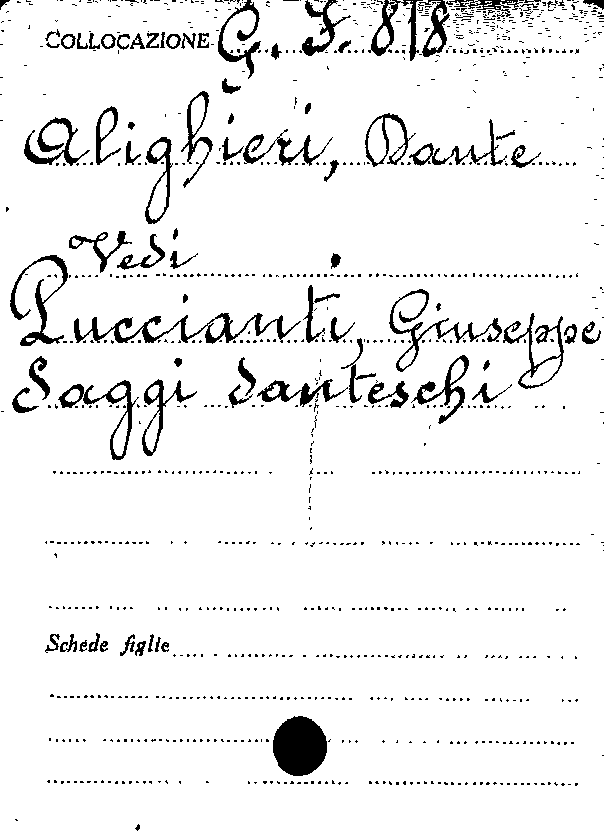 COLLOCAZIONE G. F. 818
Alighieri, Dante
Vedi
Puccianti, Giuseppe
Saggi danteschi
Schede figlie